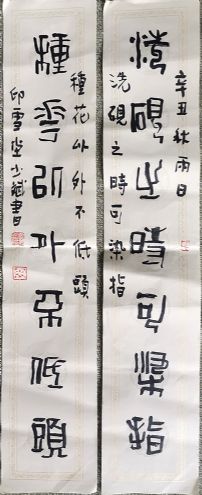 洗硯之時可染指
辛丑秋雨日
洗硯之時可染指
種花以外不低頭
種花以外不低頭
邱雪堂少斌書